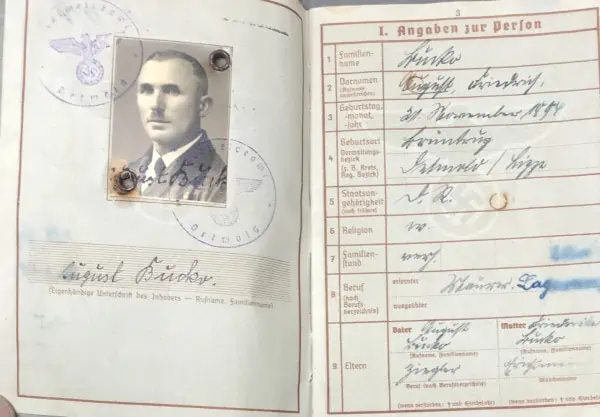 Detmold
Detmold
August Bucko.
(Eigenhändige Unterschrift des Inhabers — Rufname, Familienname)
3
I. Angaben zur Person
1 Familien-
name
Bucko
2 Vornamen
(Rufname
unterstreichen)
August, Friedrich.
3 Geburtstag,
-monat,
-jahr
21. November 1894
4 Geburtsort
Verwaltungs-
bezirk
(z. B. Kreis,
Reg. Bezirk)
Brüntrup
Detmold / Lippe
5 Staatsan-
gehörigkeit
(auch frühere)
D. R.
6 Religion
7 Familien-
stand
verh.
8 Beruf
(nach
Berufs-
verzeichnis)
erlernter
Maurer.
ausgeübter
9 Eltern
Vater August
Bucko
(Rufname, Familienname)
Ziegler
Beruf (nach Berufsverzeichnis)
(wenn verstorben: † und Sterbejahr)
Mutter Friederike
Bucko
(Rufname, Familienname)
Mädchenname
(wenn verstorben: † und Sterbejahr)